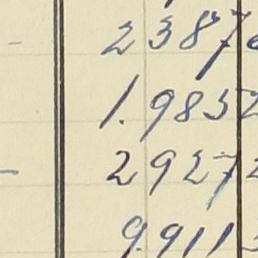 - 2387
1.985
- 2927
9.911